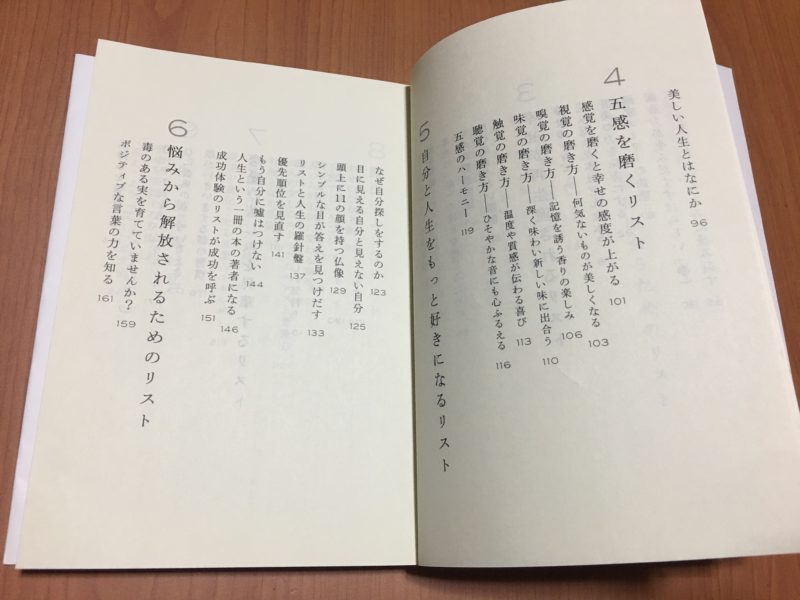 美しい人生とはなにか 96
4 五感を磨くリスト
感覚を磨くと幸せの感度が上がる 101
視覚の磨き方――何気ないものが美しくなる 103
嗅覚の磨き方――記憶を誘う香りの楽しみ 106
味覚の磨き方――深く味わい新しい味に出合う 110
触覚の磨き方――温度や質感が伝わる喜び 113
聴覚の磨き方――ひそやかな音にも心ふるえる 116
五感のハーモニー 119
5 自分と人生をもっと好きになるリスト
なぜ自分探しをするのか 123
目に見える自分と見えない自分 125
頭上に11の顔を持つ仏像 129
シンプルな目が答えを見つけだす 133
リストと人生の羅針盤 137
優先順位を見直す 141
もう自分に嘘はつけない 144
人生という一冊の本の著者になる 146
成功体験のリストが成功を呼ぶ 151
6 悩みから解放されるためのリスト
毒のある実を育てていませんか? 159
ポジティブな言葉の力を知る 161